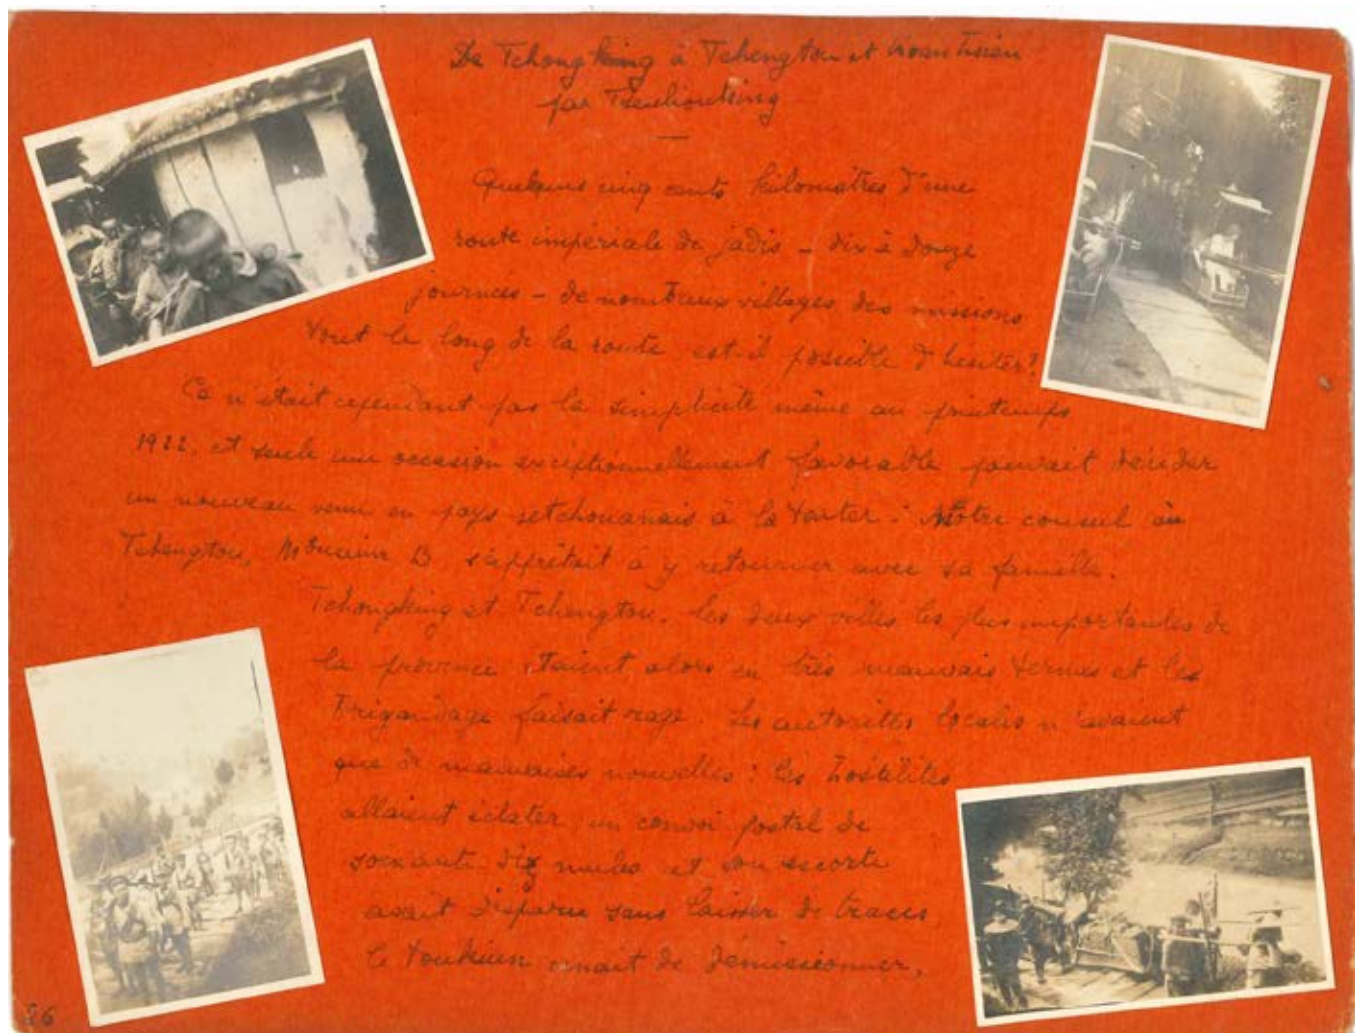 De Tchongking à Tchengtou et Koan Hsien
par Tzeuliouking
Quelques cinq cents kilomètres d'une
route impériale de jadis – dix à douze
journées – de nombreux villages des missions
tout le long de la route, est-il possible d'hésiter?
Ça n'était cependant pas la simplicité même au printemps
1922, et seule une occasion exceptionnellement favorable pouvait décider
un nouveau venu en pays setchouanais à la tenter. Notre consul à
Tchengtou, Monsieur B s'apprêtait à y retourner avec sa famille.
Tchongking et Tchengtou, les deux villes les plus importantes de
la province étaient alors en très mauvais termes et les
brigandage faisait rage. Les autorités locales n'avaient
que de mauvaises nouvelles : les hostilités
allaient éclater, un convoi postal de
soixante dix mules et son escorte
avait disparu sans laisser de traces
le toukiun venait de démissionner,
86